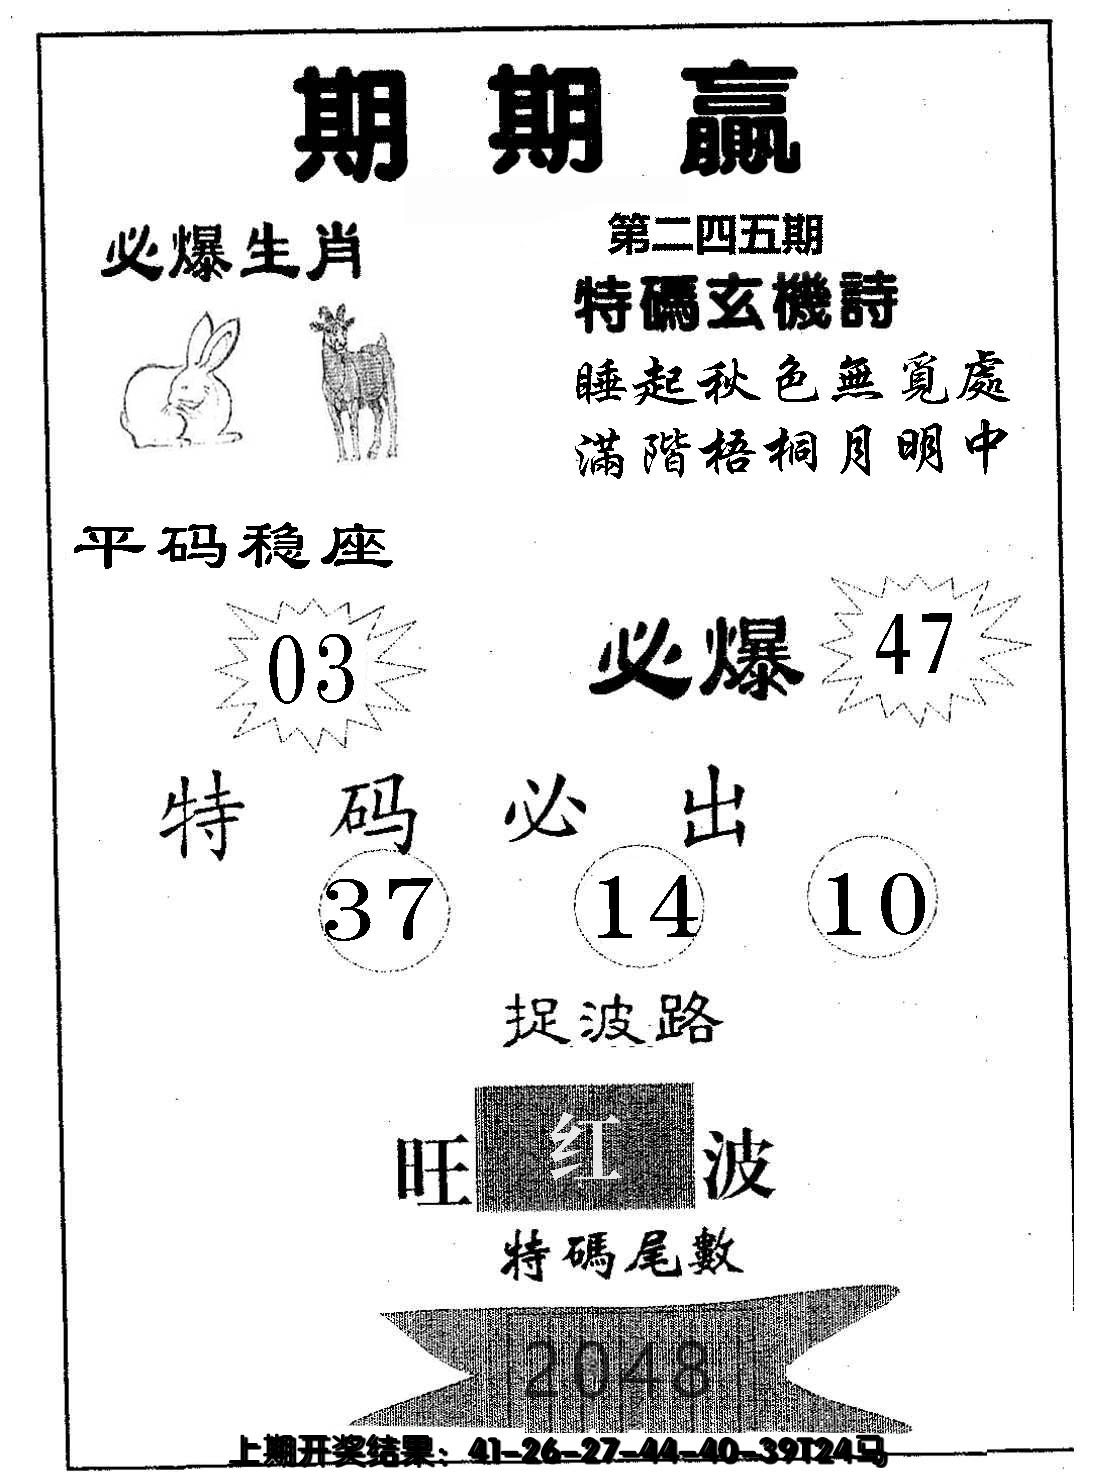 期期赢
必爆生肖
第二四五期
特碼玄機詩
睡起秋色無覓處
滿階梧桐月明中
平码稳座
03
必爆
47
特码必出
37 14 10
捉波路
旺红波
特碼尾數
2048
上期开奖结果：41-26-27-44-40-39T24马